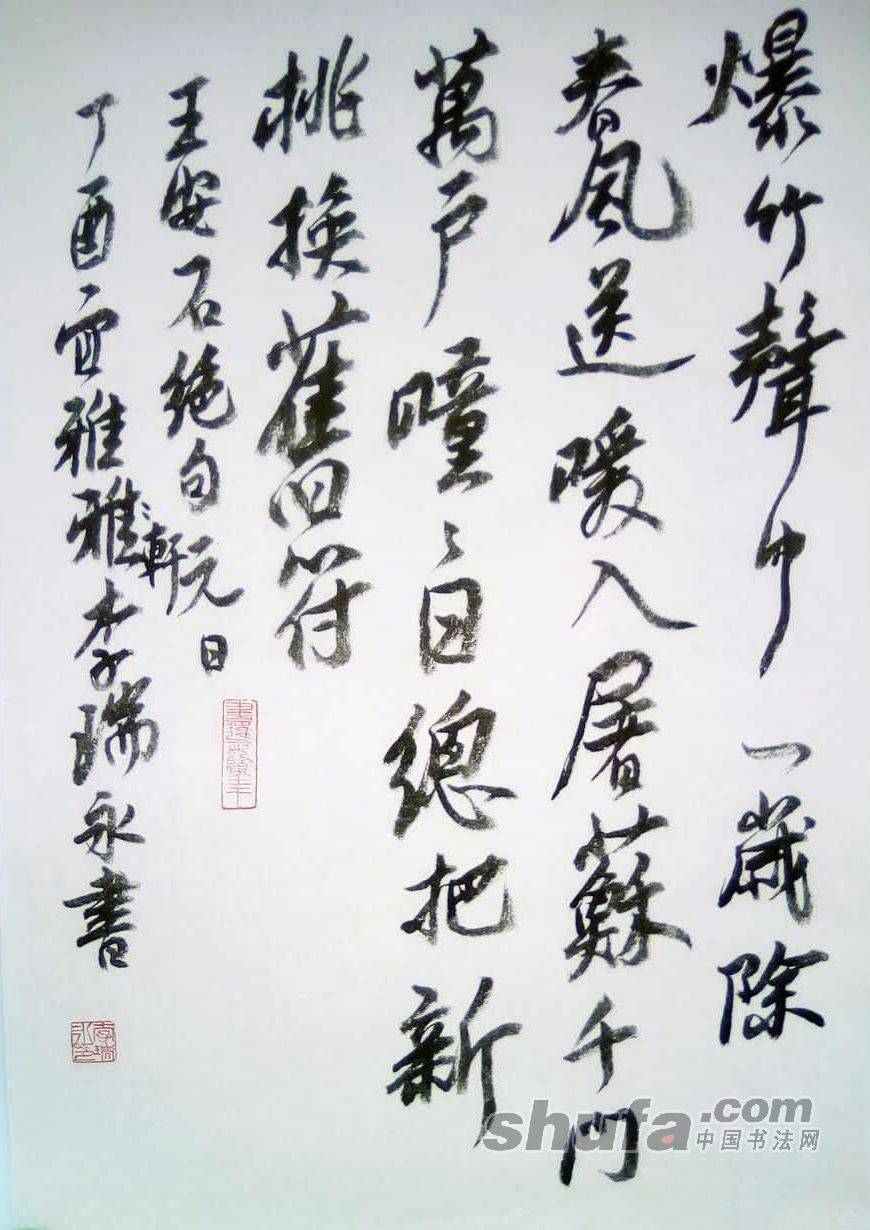 爆竹聲中一歲除
春風送暖入屠蘇千門
萬戶曈〻日總把新
桃換舊符
王安石絕句元日
丁酉宜雅雅軒李瑞永書
shufa.com
中国书法网